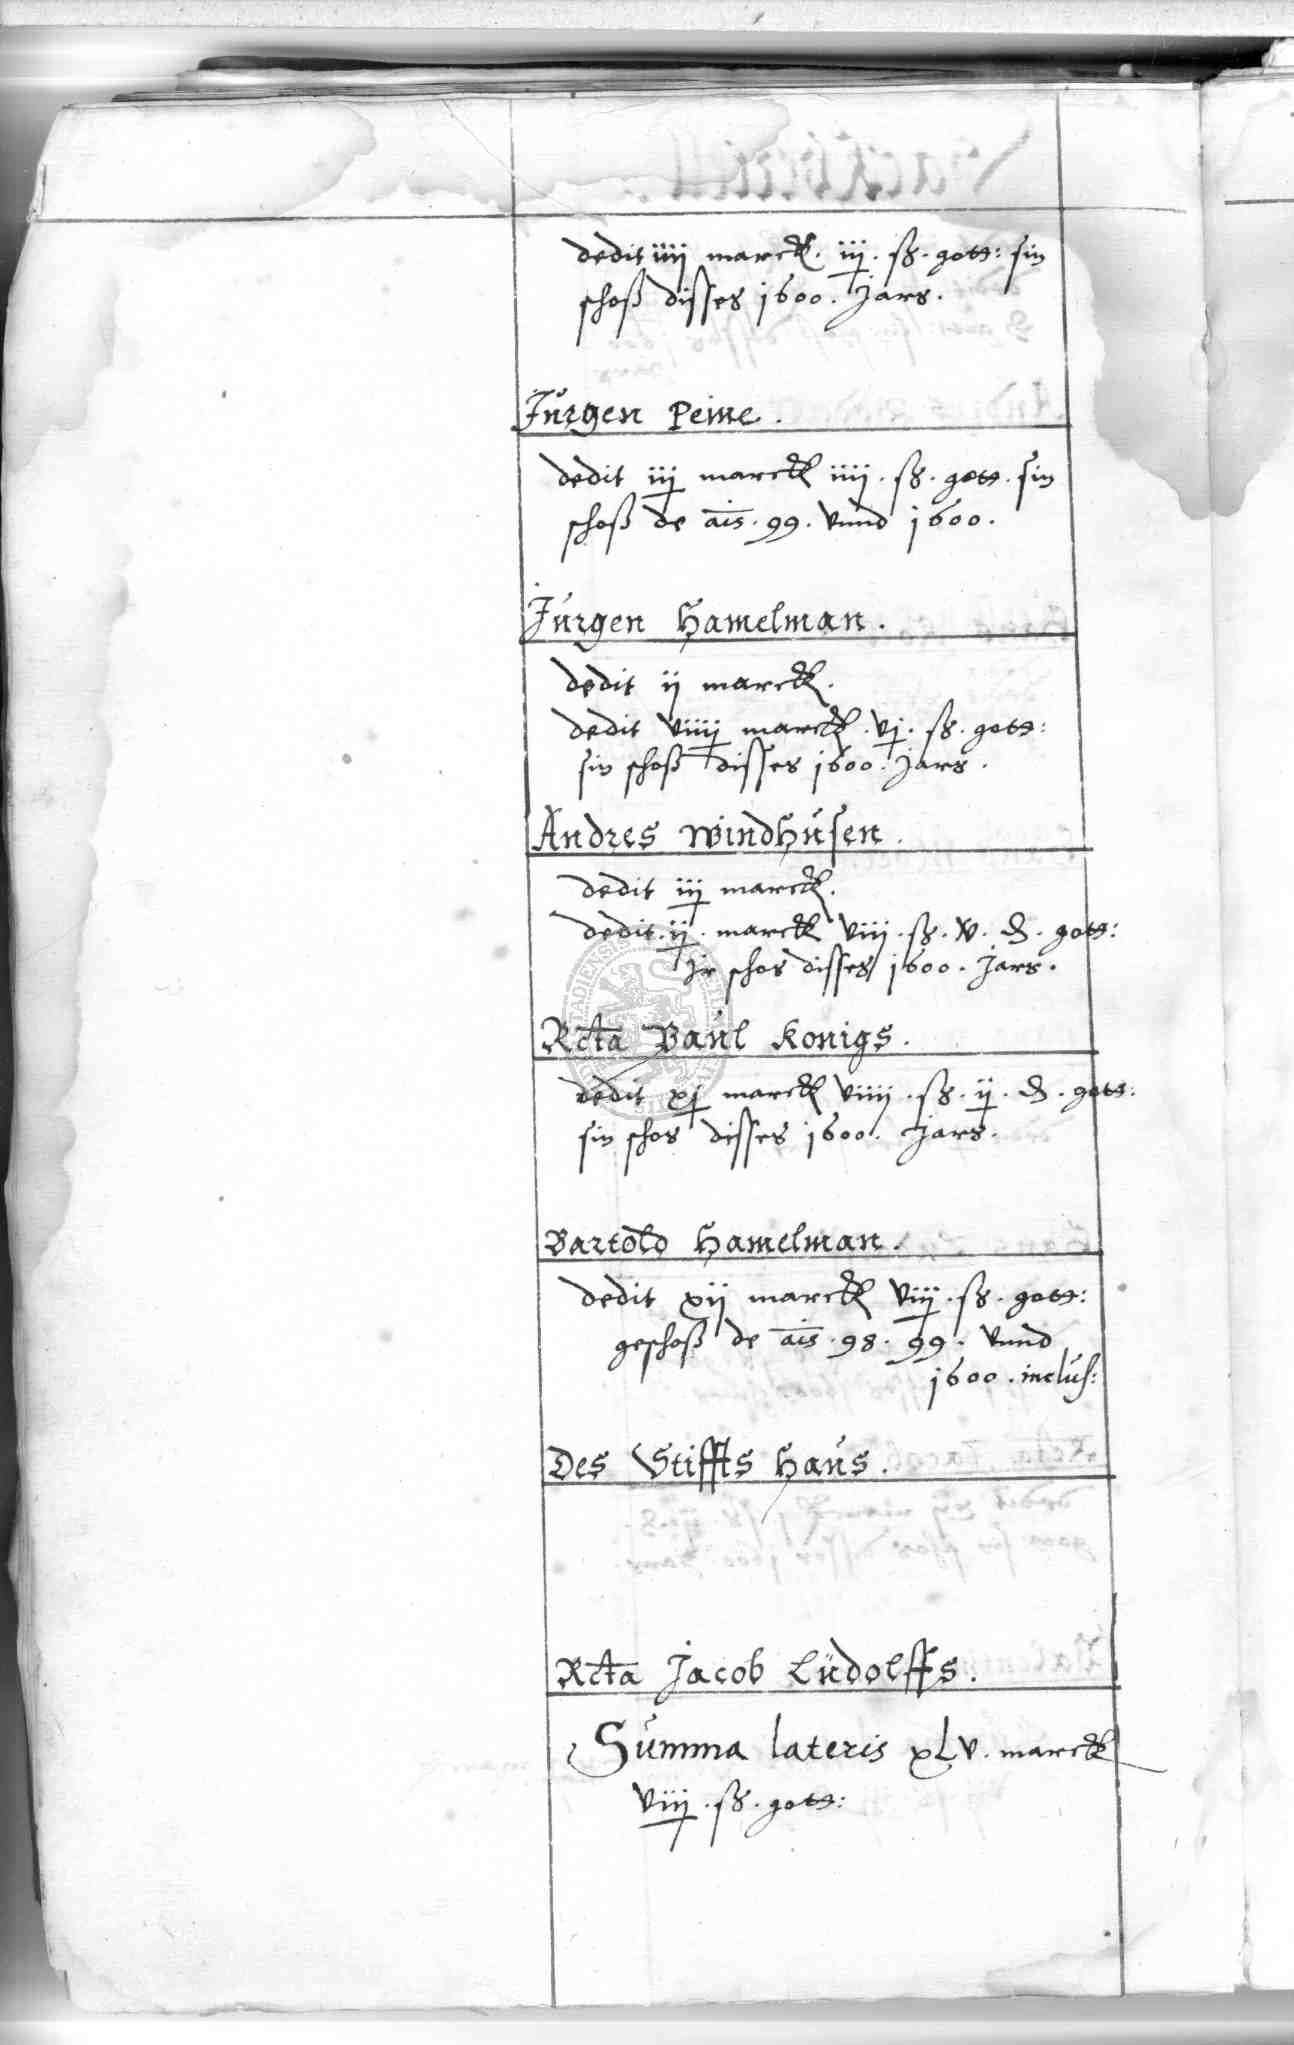 dedit iiij marck. iij. ß. gots: sin
schoß disses 1600. Jars.
Jürgen Peine.
dedit iij marck iiij. ß. gots. sin
schoß de ais. 99. vnnd 1600.
Jürgen Hamelman.
dedit ij marck.
dedit viiij marck. vj. ß. gots:
sin schoß disses 1600. Jars.
Andres Windhusen.
dedit iij marck.
dedit. ij. marck viii. ß. iv. d. gots:
Jr schos disses 1600. Jars.
Rcta Paul Konigs.
dedit xj marck viiij. ß. ij. d. gots:
sin schos disses 1600. Jars.
Bartold Hamelman.
dedit xij marck viij. ß. gots:
geschoß de ais. 98. 99. vnnd
1600. inclus:
Des Stiffts Haus.
Rcta Jacob Lüdolffs.
Summa lateris xLv. marck
viij. ß. gots: